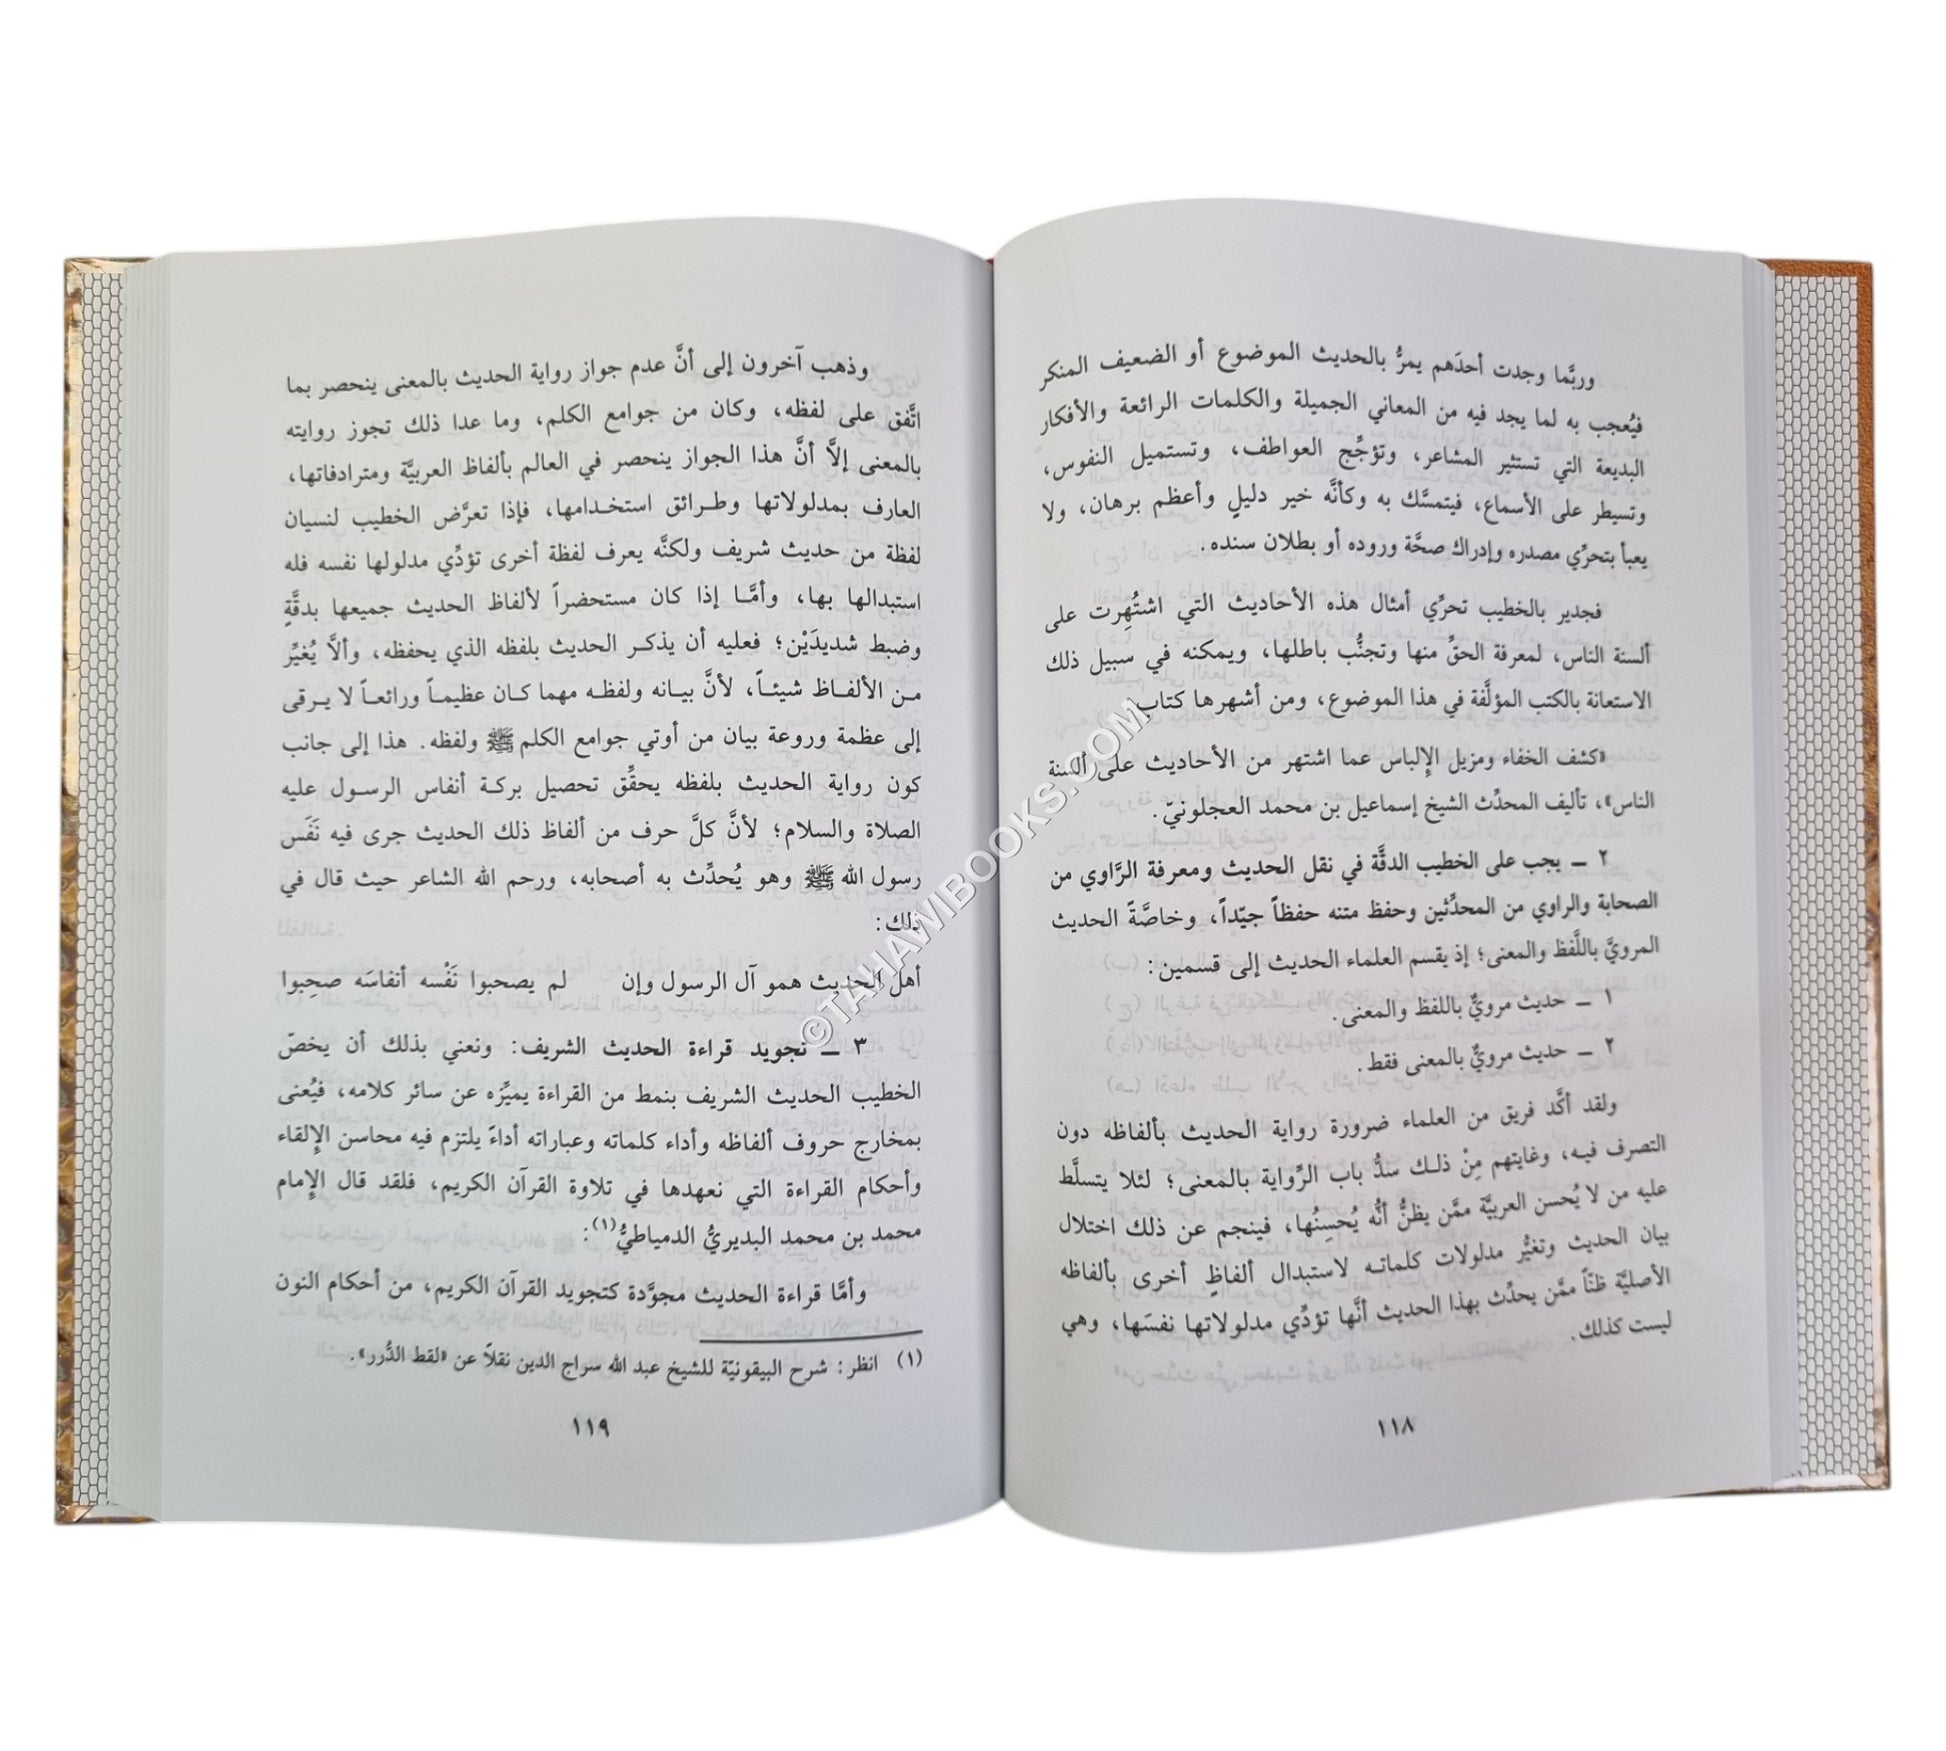 وربَّما وجدت أحدَهم يمرُّ بالحديث الموضوع أو الضعيف المنكر
فيُعجب به لما يجد فيه من المعاني الجميلة والكلمات الرائعة والأفكار
البديعة التي تستثير المشاعر، وتؤجِّج العواطف، وتستميل النفوس،
وتسيطر على الأسماع، فيتمسَّك به وكأنَّه خير دليلٍ وأعظم برهان، ولا
يعبأ بتحرِّي مصدره وإدراك صحَّة وروده أو بطلان سنده.
فجدير بالخطيب تحرِّي أمثال هذه الأحاديث التي اشتُهِرت على
ألسنة الناس، لمعرفة الحقِّ منها وتجنُّب باطلها، ويمكنه في سبيل ذلك
الاستعانة بالكتب المؤلَّفة في هذا الموضوع، ومن أشهرها كتاب
«كشف الخفاء ومزيل الإلباس عما اشتهر من الأحاديث على ألسنة
الناس»، تأليف المحدِّث الشيخ إسماعيل بن محمد العجلونيّ.
٢ ــ يجب على الخطيب الدقَّة في نقل الحديث ومعرفة الرَّاوي من
الصحابة والراوي من المحدِّثين وحفظ متنه حفظاً جيّداً، وخاصَّةً الحديث
المرويَّ باللَّفظ والمعنى؛ إذ يقسم العلماء الحديث إلى قسمين:
١ ــ حديث مرويٌّ باللفظ والمعنى.
٢ ــ حديث مرويٌّ بالمعنى فقط.
ولقد أكَّد فريق من العلماء ضرورة رواية الحديث بألفاظه دون
التصرف فيه، وغايتهم مِنْ ذلك سدُّ باب الرِّواية بالمعنى؛ لئلا يتسلَّط
عليه من لا يُحسن العربيَّة ممَّن يظنُّ أنَّه يُحسِنُها، فينجم عن ذلك اختلال
بيان الحديث وتغيُّر مدلولات كلماته لاستبدال ألفاظٍ أخرى بألفاظه
الأصليَّة ظنّاً ممَّن يحدِّث بهذا الحديث أنَّها تؤدِّي مدلولاتها نفسَها، وهي
ليست كذلك.
١١٨
وذهب آخرون إلى أنَّ عدم جواز رواية الحديث بالمعنى ينحصر بما
اتَّفق على لفظه، وكان من جوامع الكلم، وما عدا ذلك تجوز روايته
بالمعنى إلَّا أنَّ هذا الجواز ينحصر في العالم بألفاظ العربيَّة ومترادفاتها،
العارف بمدلولاتها وطرائق استخدامها، فإذا تعرَّض الخطيب لنسيان
لفظة من حديث شريف ولكنَّه يعرف لفظة أخرى تؤدِّي مدلولها نفسه فله
استبدالها بها، وأمَّا إذا كان مستحضراً لألفاظ الحديث جميعها بدقَّةٍ
وضبط شديدَيْن؛ فعليه أن يذكر الحديث بلفظه الذي يحفظه، وألاَّ يُغيِّر
من الألفاظ شيئاً، لأنَّ بيانه ولفظه مهما كان عظيماً ورائعاً لا يرقى
إلى عظمة وروعة بيان من أوتي جوامع الكلم ﷺ ولفظه. هذا إلى جانب
كون رواية الحديث بلفظه يحقِّق تحصيل بركة أنفاس الرسول عليه
الصلاة والسلام؛ لأنَّ كلَّ حرف من ألفاظ ذلك الحديث جرى فيه نَفَس
رسول الله ﷺ وهو يُحدِّث به أصحابه، ورحم الله الشاعر حيث قال في
ذلك:
أهل الحديث همو آل الرسول وإن لم يصحبوا نَفْسه أنفاسَه صحِبوا
٣ ــ تجويد قراءة الحديث الشريف: ونعني بذلك أن يخصّ
الخطيب الحديث الشريف بنمط من القراءة يميِّزه عن سائر كلامه، فيُعنى
بمخارج حروف ألفاظه وأداء كلماته وعباراته أداءً يلتزم فيه محاسن الإلقاء
وأحكام القراءة التي نعهدها في تلاوة القرآن الكريم، فلقد قال الإمام
محمد بن محمد البديريُّ الدمياطيُّ(١):
وأمَّا قراءة الحديث مجوَّدة كتجويد القرآن الكريم، من أحكام النون
(١) انظر: شرح البيقونيّة للشيخ عبد الله سراج الدين نقلاً عن «لقط الدُّرر».
١١٩
©TAHAWIBOOKS.COM